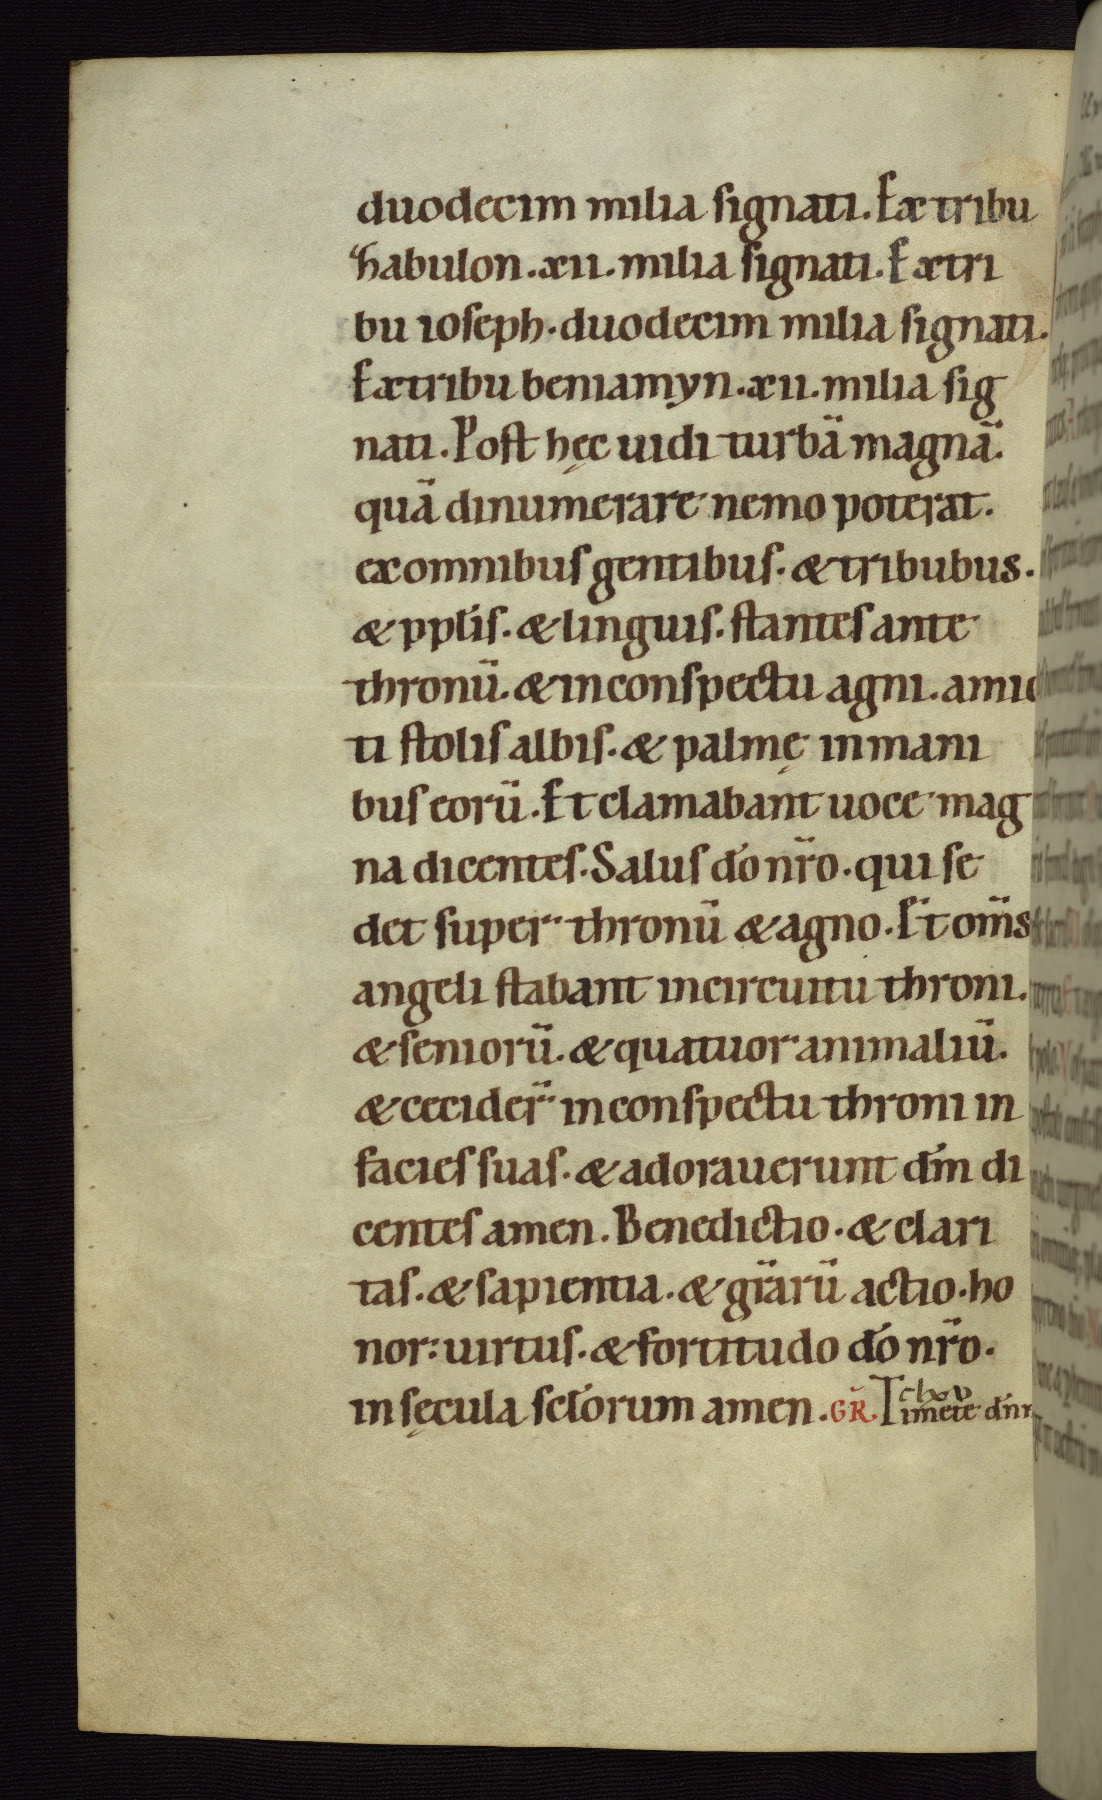 duodecim milia signati. Ex tribu
Zabulon. xii. milia signati. Ex tri
bu ioseph. duodecim milia signati.
Ex tribu beniamyn. xii. milia sig
nati. Post hęc uidi turbā magnā.
quā dinumerare nemo poterat.
ex omnibus gentibus. & tribubus.
& pplis. & linguis. stantes ante
thronū. & in conspectu agni. amic
ti stolis albis. & palmę in mani
bus eorū. Et clamabant uoce mag
na dicentes. Salus do nr̄o. qui se
det super thronū & agno. Et om̄s
angeli stabant in circuitu throni.
& seniorū. & quatuor animaliū.
& cecider̄ in conspectu throni in
facies suas. & adorauerunt dm̄ di
centes amen. Benedictio. & clari
tas. & sapientia. & gr̄arū actio. ho
nor: uirtus. & fortitudo do nr̄o.
in sęcula sclorum amen. GR̄. Timete dn̄m
clxv